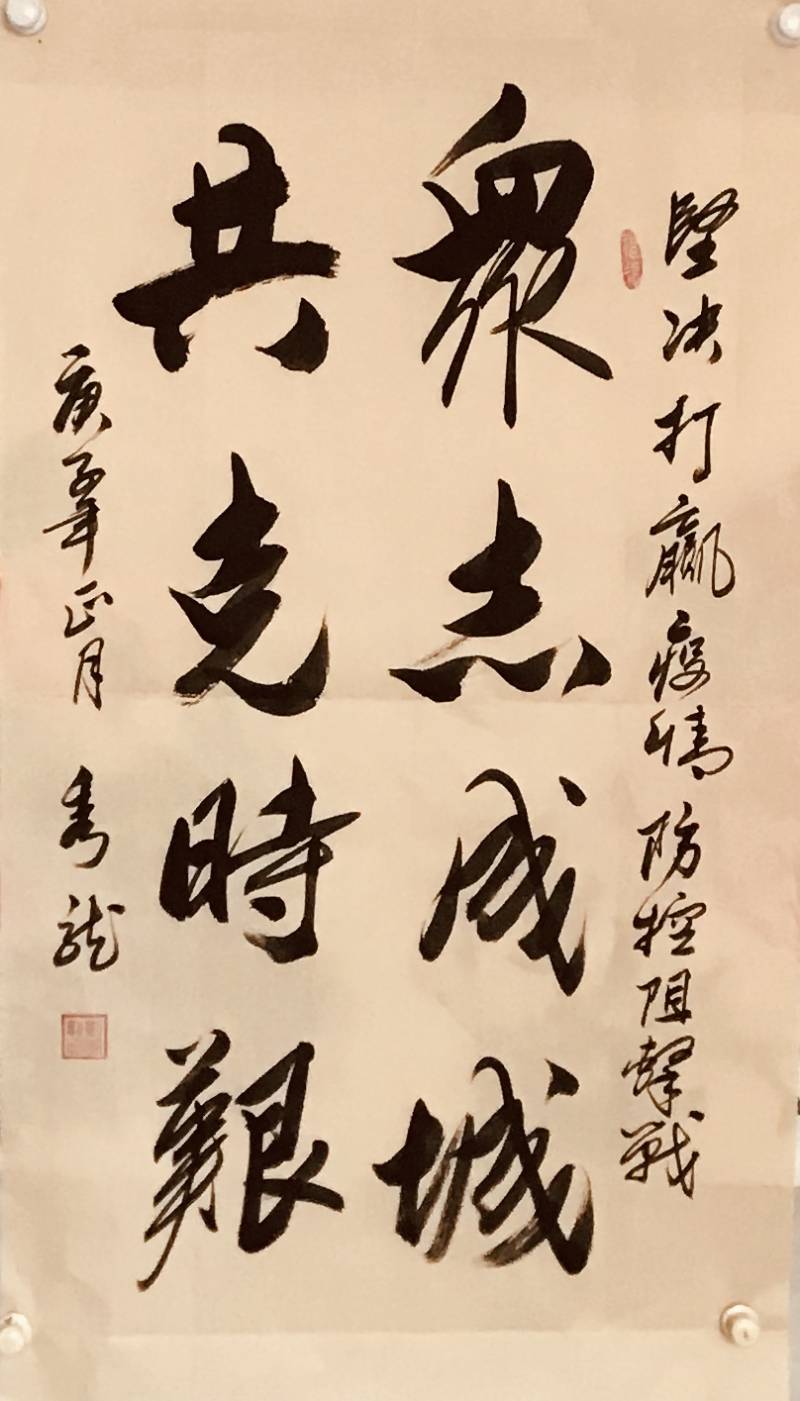 堅决打贏疫情防控阻擊戰
眾志成城
共克時艱
庚子年正月 秀龍